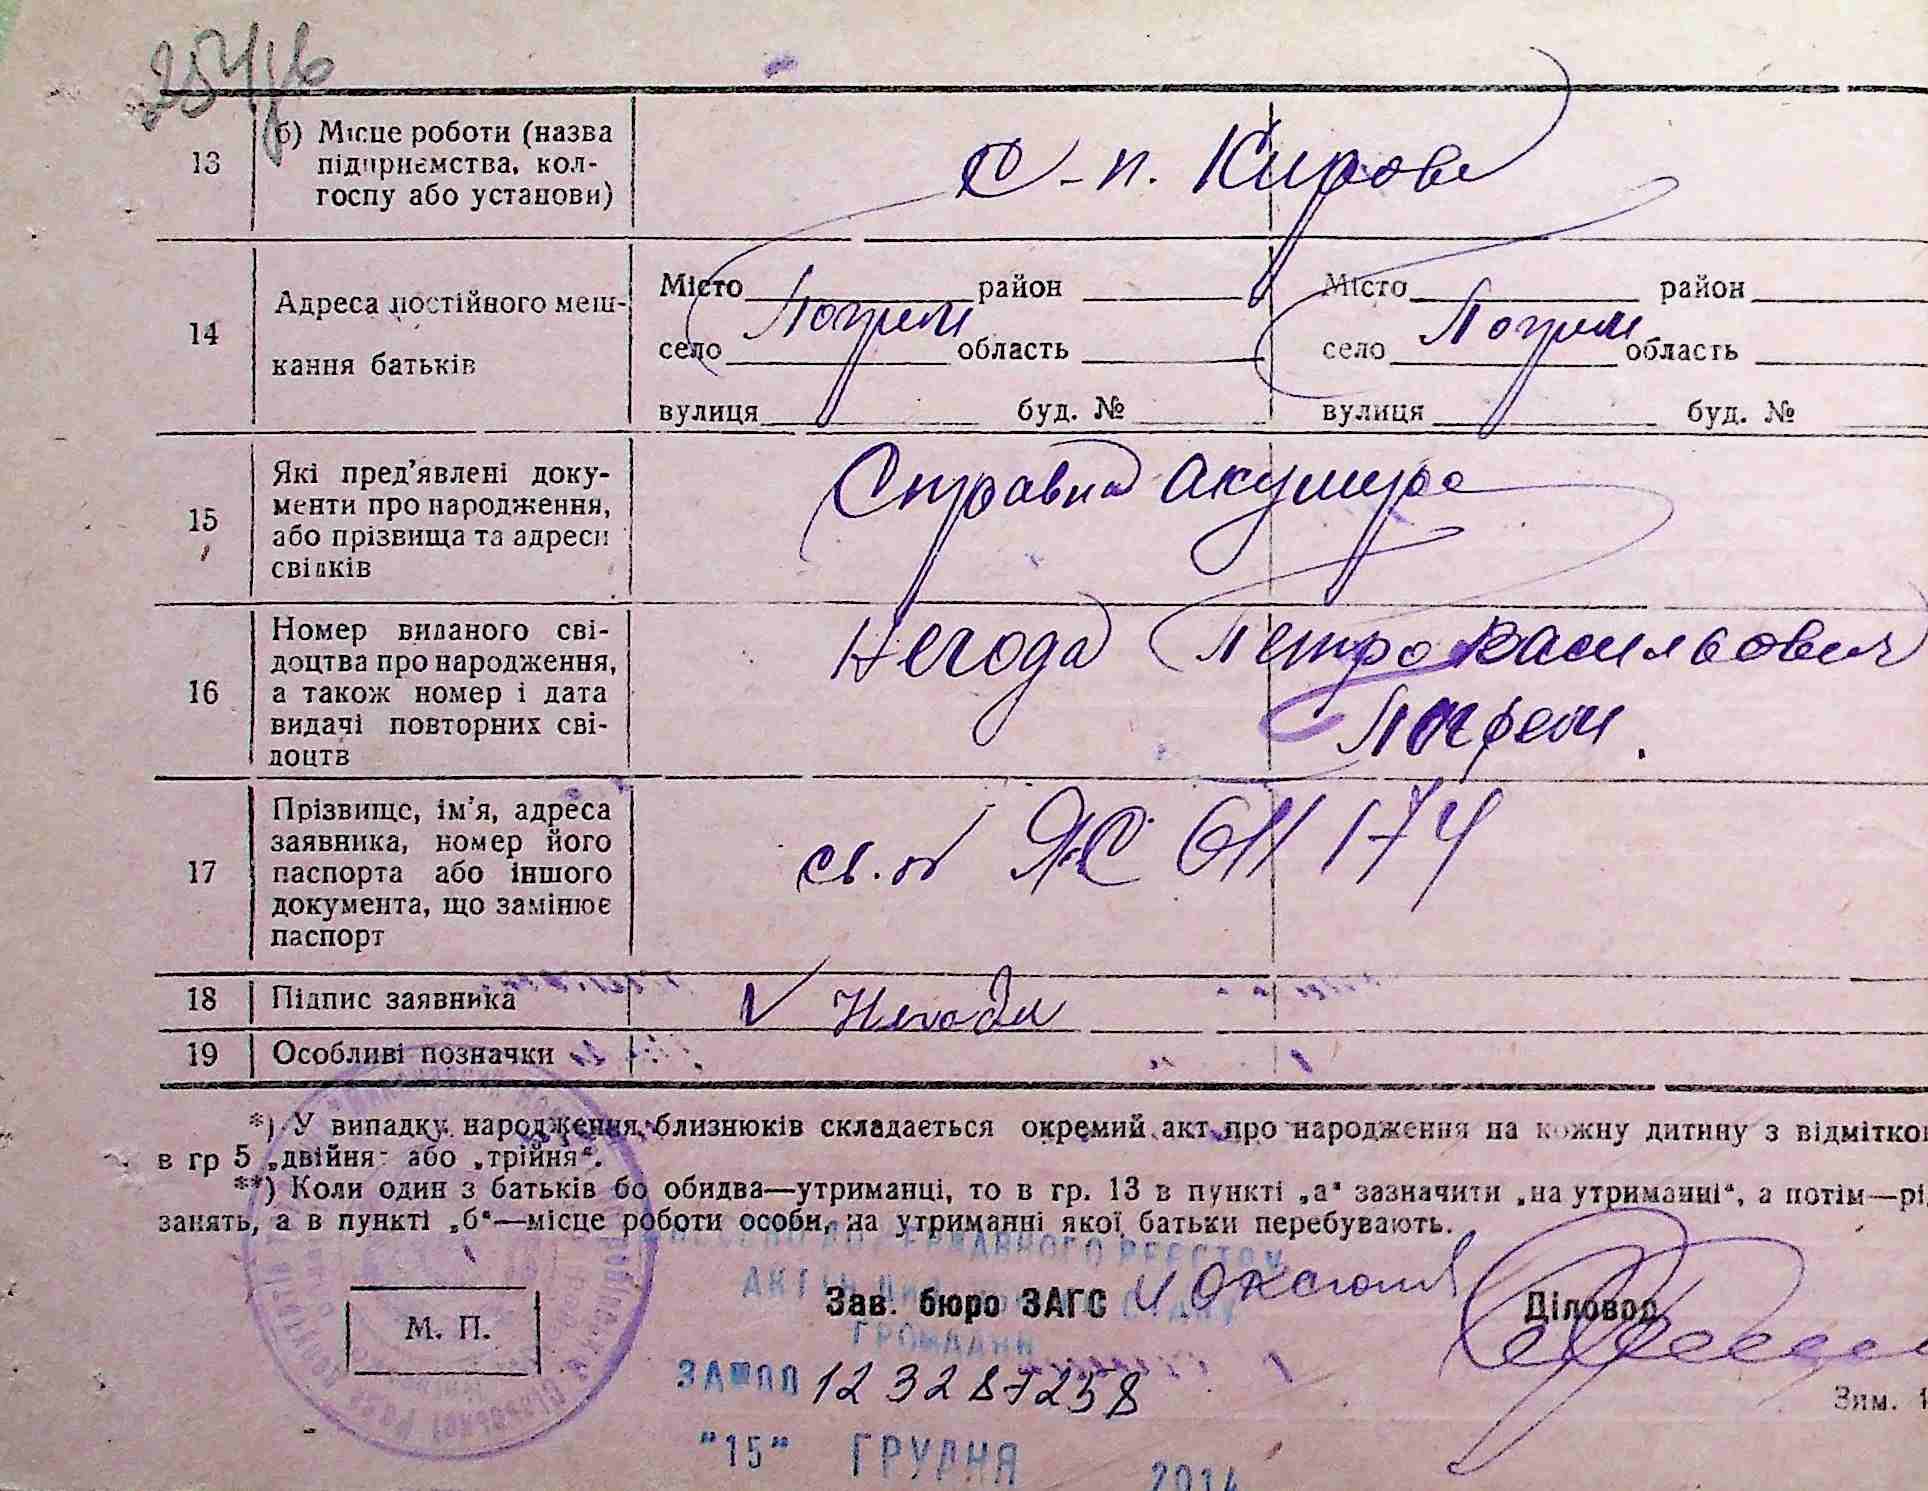 254/б
13 б) Місце роботи (назва
підприємства, кол-
госпу або установи)
С-п. Кирова
14 Адреса постійного меш-
кання батьків
Місто район Місто район
село Погреби область село Погреби область
вулиця буд. № вулиця буд. №
15 Які пред’явлені доку-
менти про народження,
або прізвища та адреси
свідків
Справка акушера
16 Номер виданого сві-
доцтва про народження,
а також номер і дата
видачі повторних сві-
доцтв
Негода Петро Васильович
Погреби.
17 Прізвище, ім’я, адреса
заявника, номер його
паспорта або іншого
документа, що замінює
паспорт
св. ЯС 611174
18 Підпис заявника
V Негода
19 Особливі позначки
*) У випадку народження близнюків складається окремий акт про народження на кожну дитину з відмітко
в гр 5 „двійня“ або „трійня“.
**) Коли один з батьків бо обидва—утриманці, то в гр. 13 в пункті „а“ зазначити „на утриманні“, а потім—рі
занять, а в пункті „б“—місце роботи особи, на утриманні якої батьки перебувають.
ДЕРЖАВНОГО РЕЄСТРУ
АКТІВ ЦИВІЛЬНОГО СТАНУ
ГРОМАДЯН
М. П.
Зав. бюро ЗАГС Діловод
ЗА №00 123287258
"15" ГРУДНЯ 2014
Зим. 1